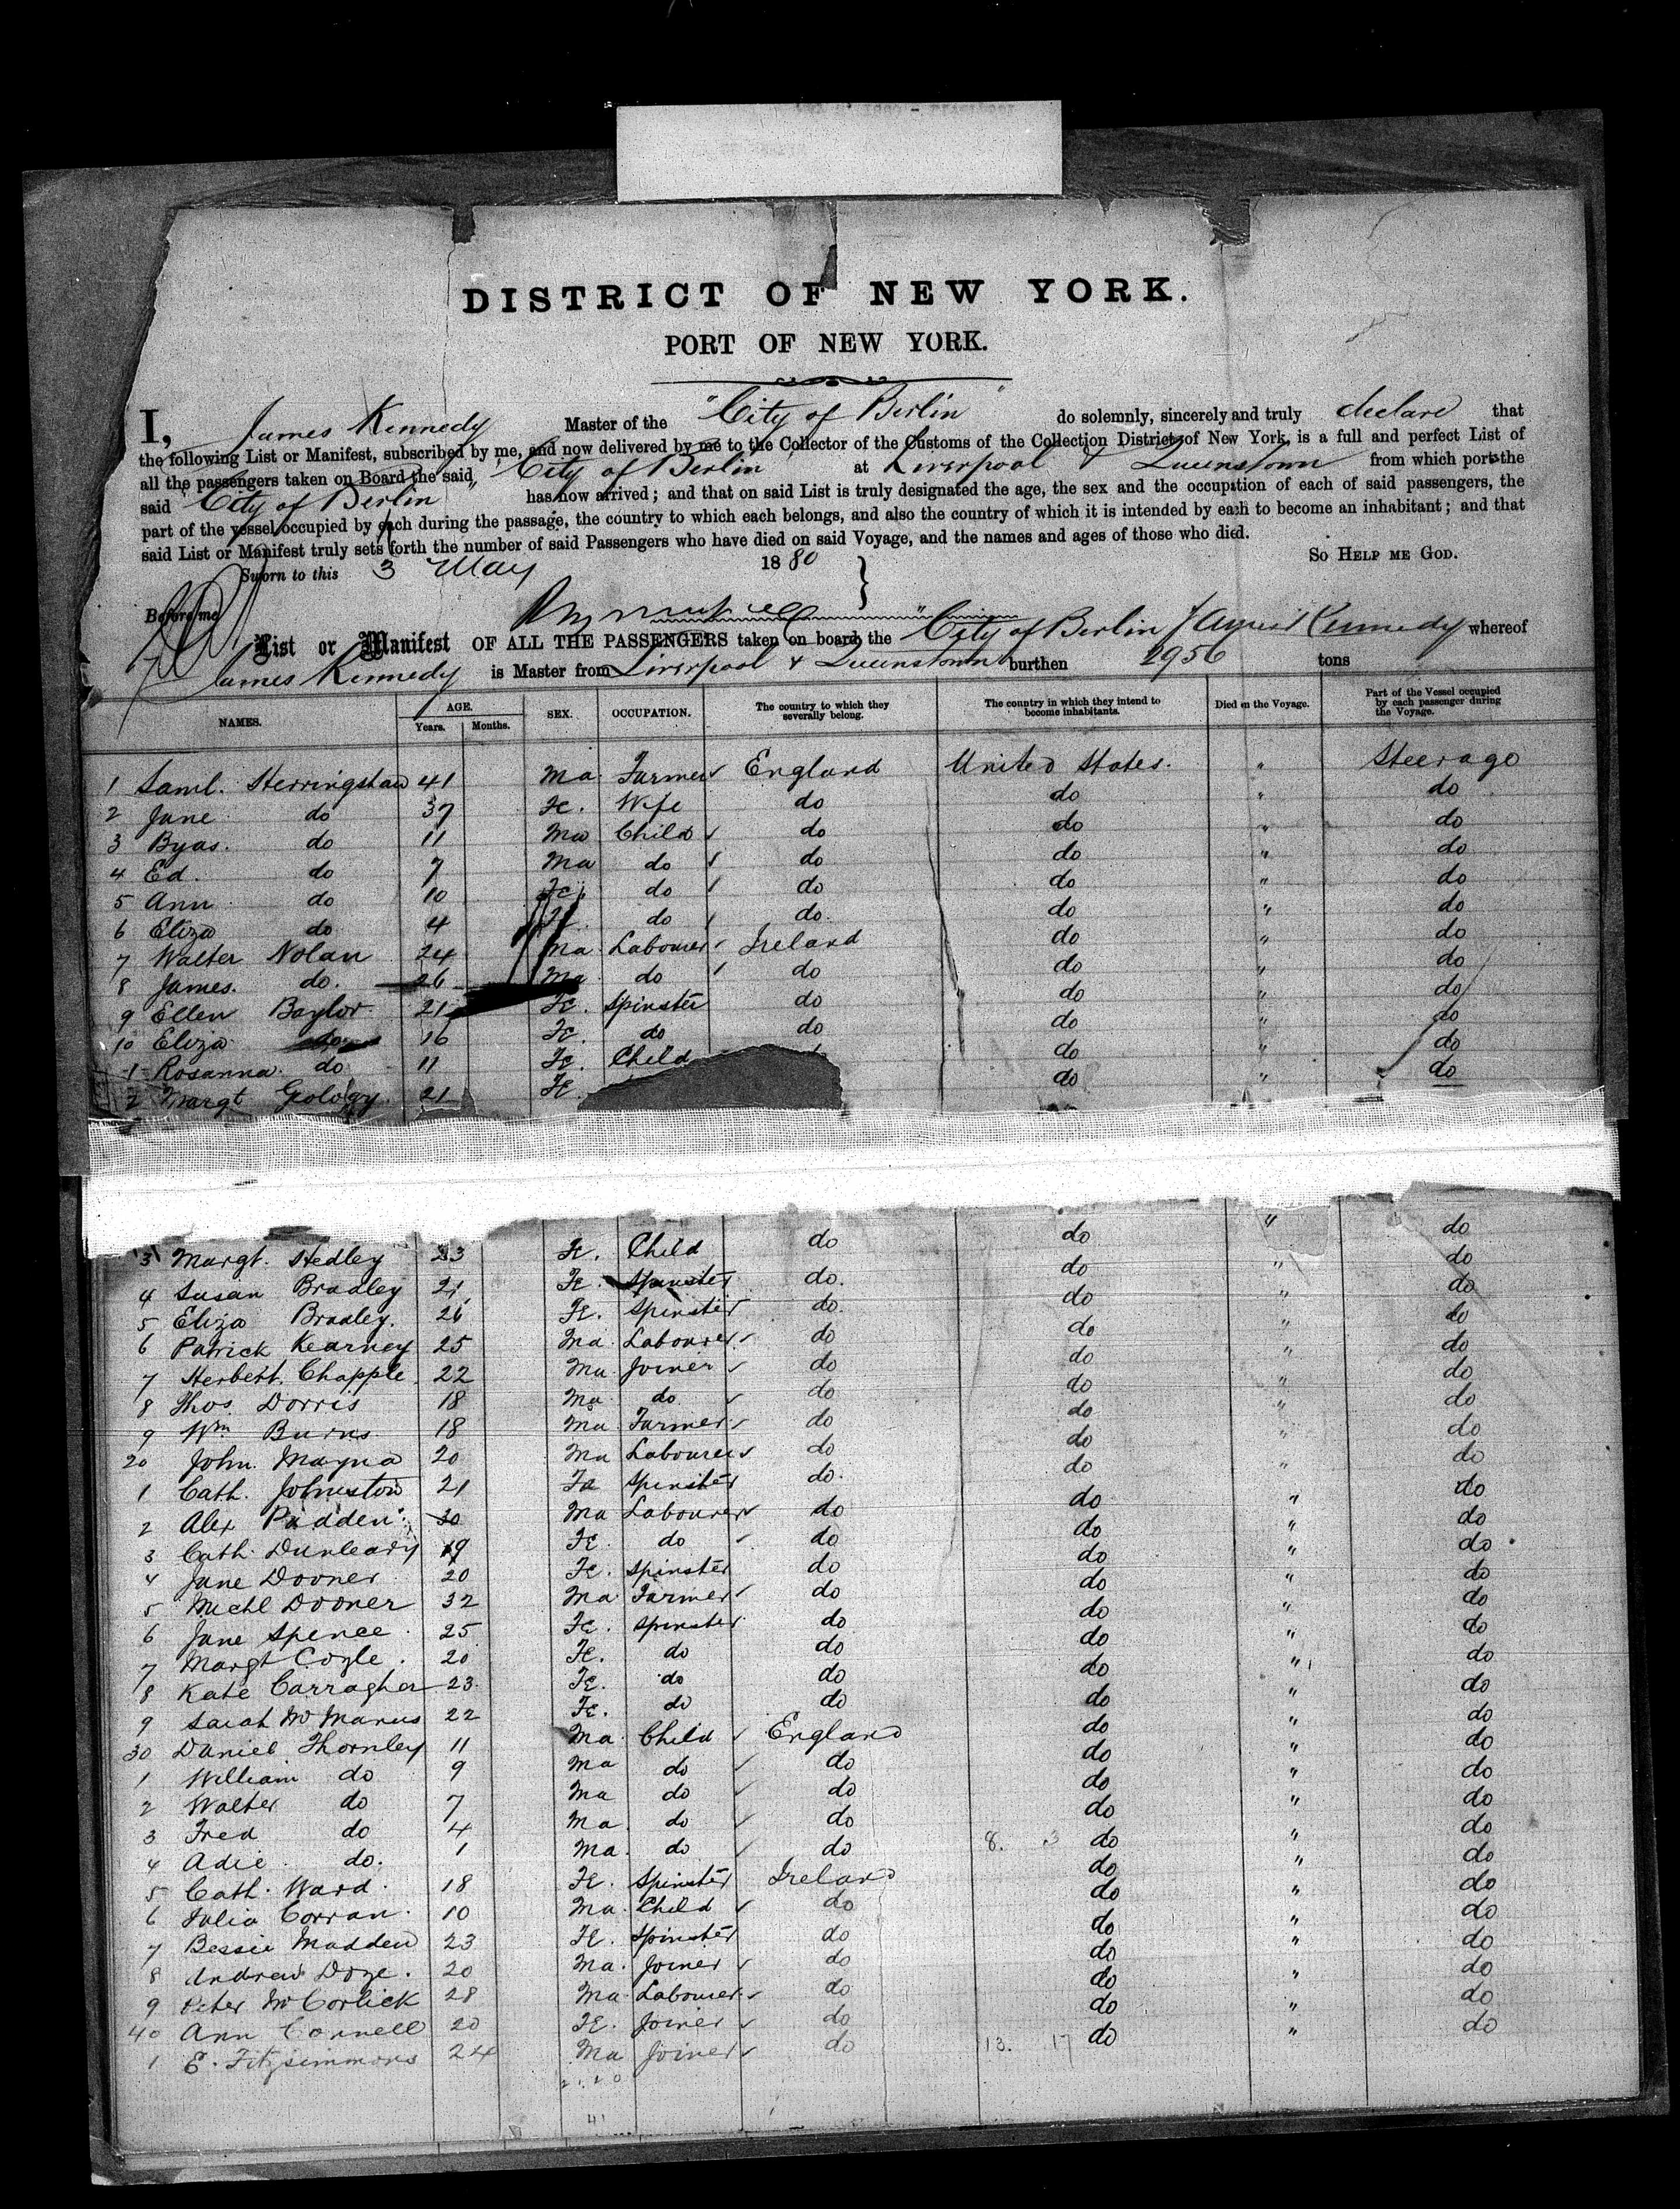 DISTRICT OF NEW YORK.
PORT OF NEW YORK.
I, James Kennedy Master of the "City of Berlin" do solemnly, sincerely and truly declare that
the following List or Manifest, subscribed by me, and now delivered by me to the Collector of the Customs of the Collection District of New York, is a full and perfect List of
all the passengers taken on Board the said "City of Berlin" at Liverpool & Queenstown from which port the
said "City of Berlin" has now arrived; and that on said List is truly designated the age, the sex and the occupation of each of said passengers, the
part of the vessel occupied by each during the passage, the country to which each belongs, and also the country of which it is intended by each to become an inhabitant; and that
said List or Manifest truly sets forth the number of said Passengers who have died on said Voyage, and the names and ages of those who died.
So HELP ME GOD.
Sworn to this 3 May 1880
Before me
List or Manifest OF ALL THE PASSENGERS taken on board the City of Berlin James Kennedy whereof
James Kennedy is Master from Liverpool & Queenstown burthen 2956 tons
NAMES. AGE. Years. Months. SEX. OCCUPATION. The country to which they severally belong. The country in which they intend to become inhabitants. Died on the Voyage. Part of the Vessel occupied by each passenger during the Voyage.
1 Saml. Herringshaw 41 Ma Farmer England United States. " Steerage
2 Jane do 37 Fe. Wife do do " do
3 Byas. do 11 Ma Child do do " do
4 Ed. do 7 Ma do do do " do
5 Ann do 10 Fe. do do do " do
6 Eliza do 4 do do do " do
7 Walter Nolan 24 Ma Labourer Ireland do " do
8 James. do. 26 Ma do do do " do
9 Ellen Baylor 21 Fe. Spinster do do " do
10 Eliza do 16 Fe. do do do " do
1 Rosanna do 11 Fe. Child do " do
2 Margt 21 Fe. do " do
" do
3 Margt. Hedley 23 Fe. Child do do " do
4 Susan Bradley 21 Fe. Spinster do. do " do
5 Eliza Bradley. 26 Fe. Spinster do. do " do
6 Patrick Kearney 25 Ma. Labourer do do " do
7 Herbert Chapple 22 Ma Joiner do do " do
8 Thos. Dorris 18 Ma do do do " do
9 Wm Burns 18 Ma Farmer do do " do
20 John Mayna 20 Ma Labourer do do " do
1 Cath. Johnston 21 Fe Spinster do. do " do
2 Alex Padden 30 Ma Labourer do do " do
3 Cath. Dunleavy 19 Fe. do do do " do
4 Jane Dooner 20 Fe. Spinster do do " do
5 Michl Dooner 32 Ma Farmer do do " do
6 Jane Spence 25 Fe. Spinster do do " do
7 Margt Coyle. 20 Fe. do do do " do
8 Kate Carragher 23 Fe. do do do " do
9 Sarah McManus 22 Fe. do do do " do
30 Daniel Thornley 11 Ma Child England do " do
1 William do 9 Ma do do do " do
2 Walter do 7 Ma do do do " do
3 Fred do 4 Ma. do do do " do
4 Adie do. 1 Ma. do do 8. 3 do " do
5 Cath. Ward 18 Fe. Spinster Ireland do " do
6 Julia Corran 10 Ma. Child do do " do
7 Bessie Madden 23 Fe. Spinster do do " do
8 Andrew Doze. 20 Ma. Joiner do do " do
9 Peter McCorlick 28 Ma Labourer do do " do
40 Ann Connell 20 Fe. Joiner do do " do
1 E. Fitzsimmons 24 Ma Joiner do 13. 17 do " do
41